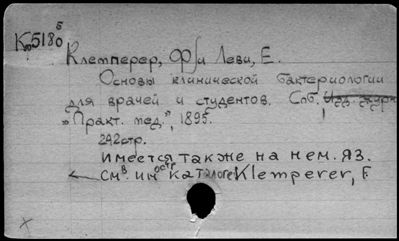 К5180
Клемперер, Ф. и Леви, Е.
Основы клинической бактериологии
для врачей и студентов. Спб.
"Практ. мед.", 1895.
242 стр.
имеется также на нем. яз.
← см. в иностр каталоге Klemperer, F.